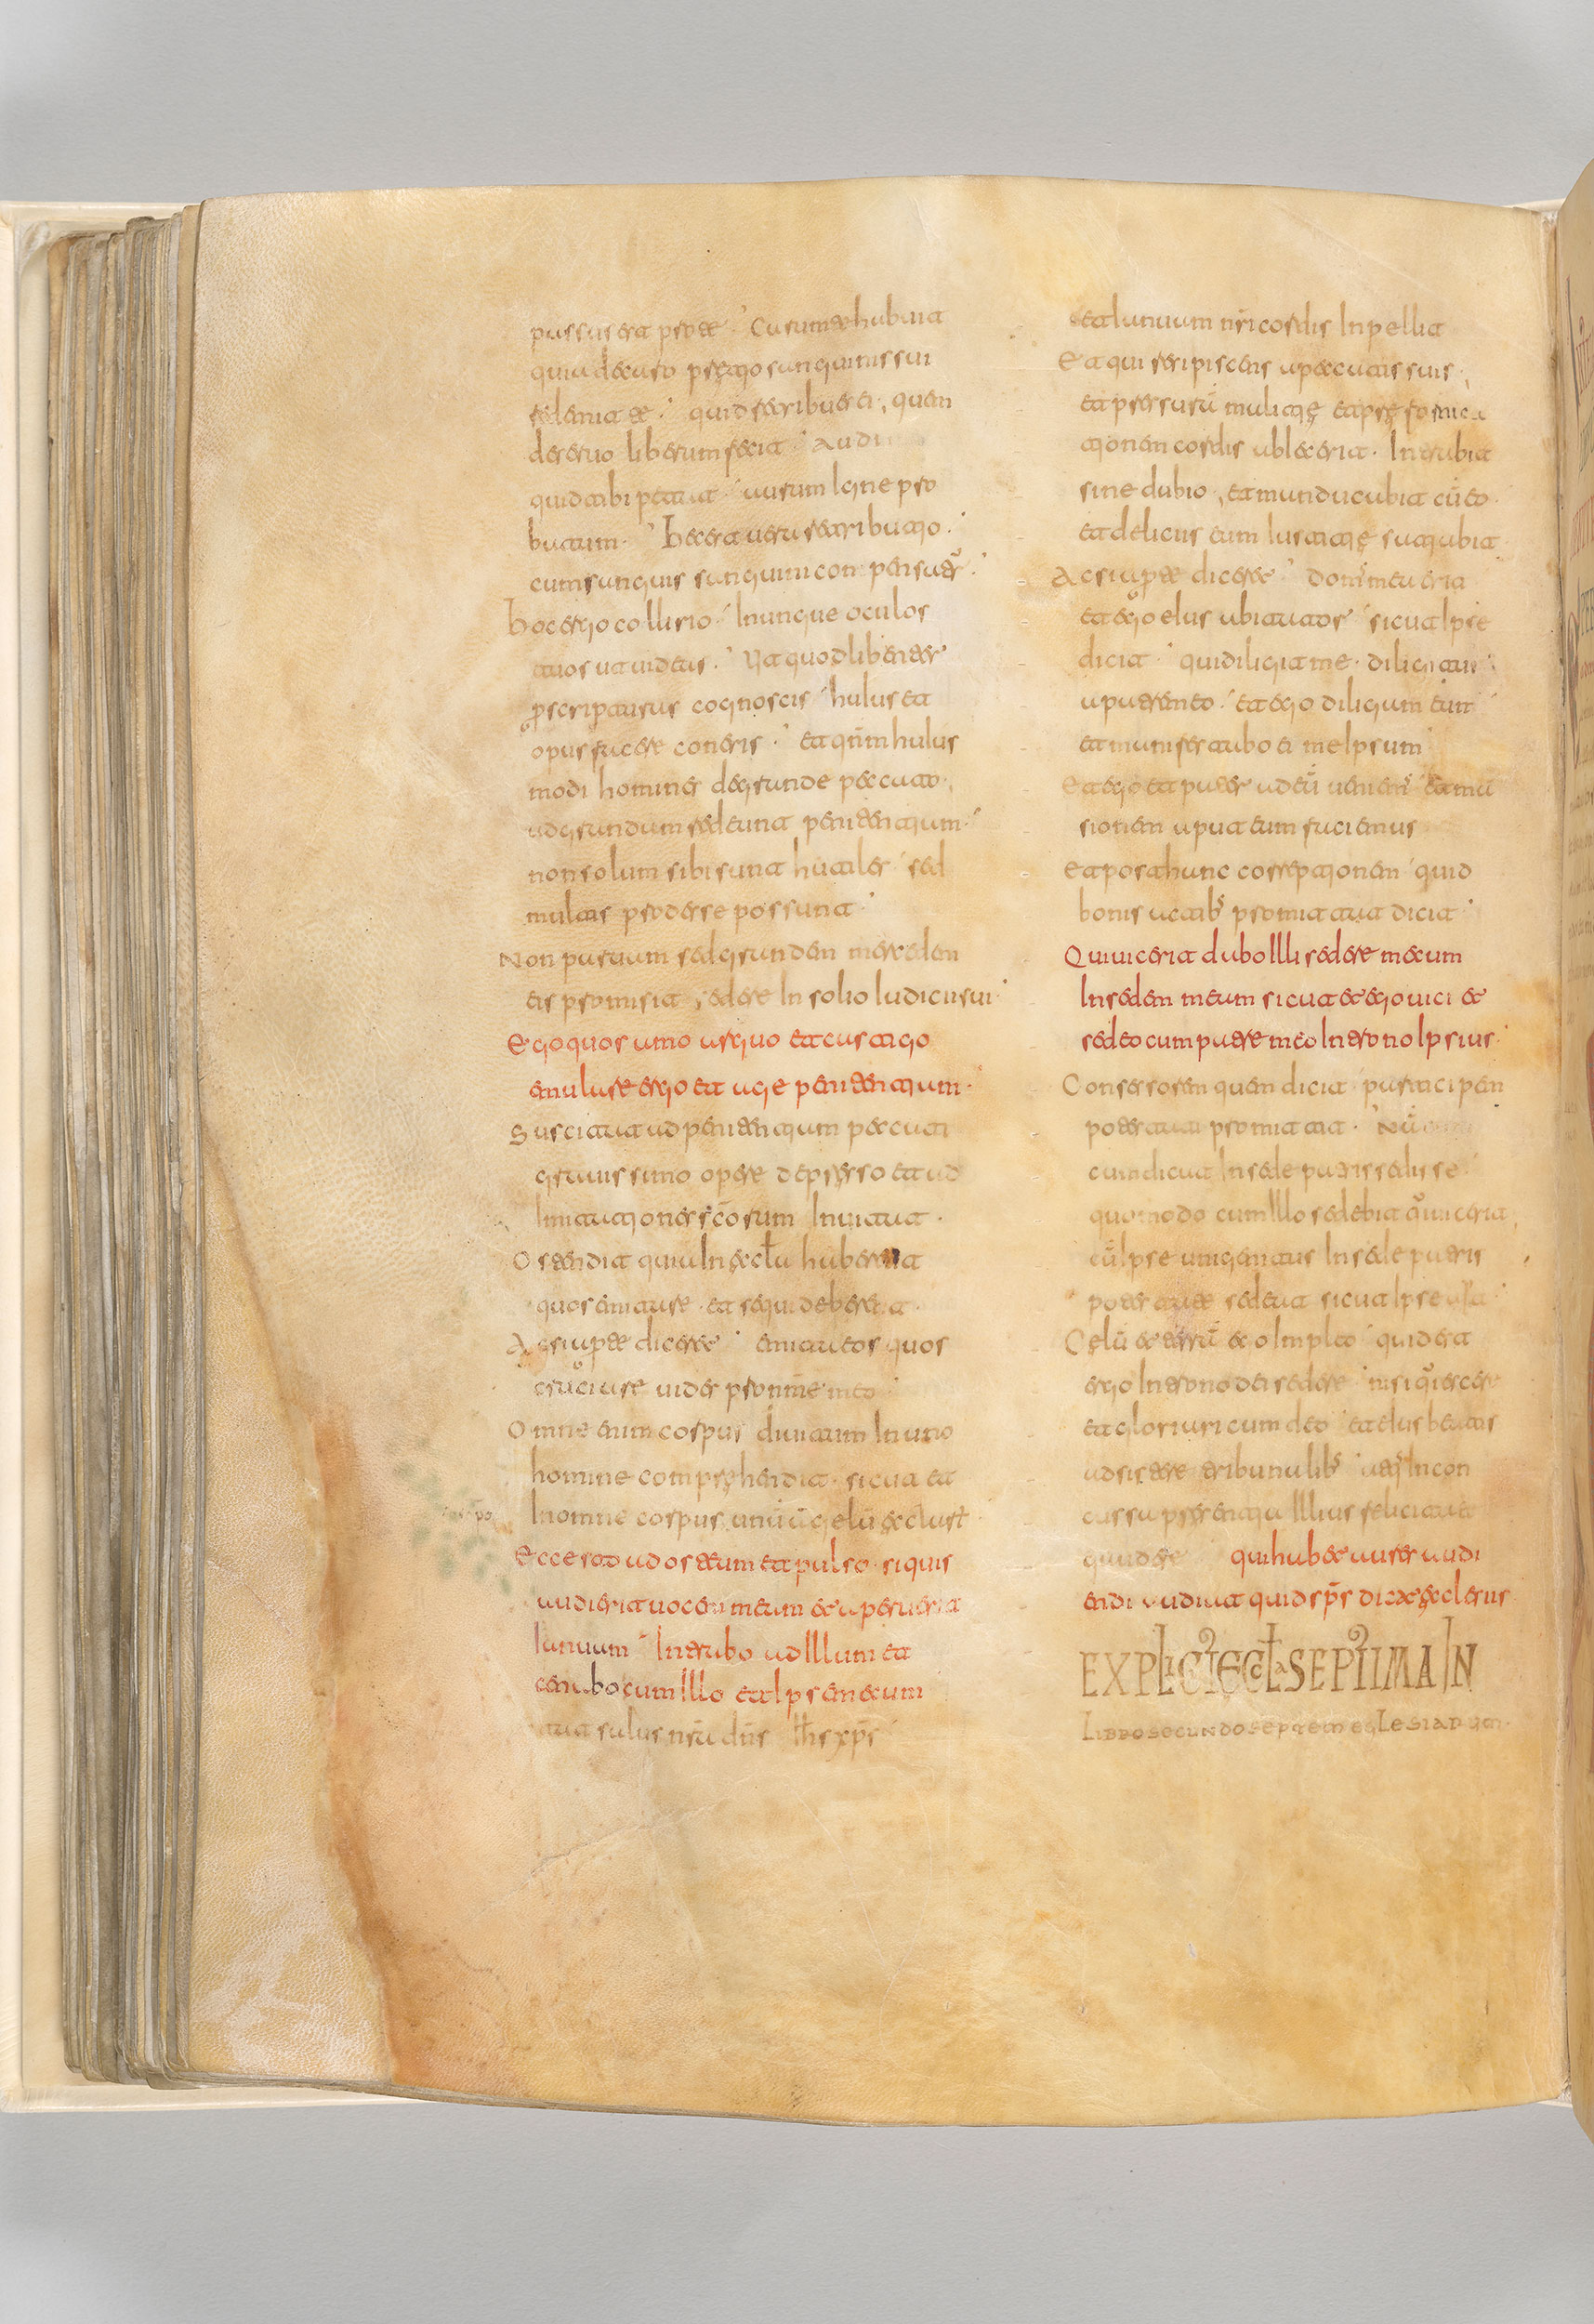 passus est pro te. Carum te habuit
quia de caro pretio sanguinis sui
redemit te. quid retribues ei, quem
de reatuo liberum fecit. Audi
quid tibi petat. aurum igne pro
batum. Hec est uera retributio.
cum sanguis sanguini conpensatur.
Hoc ergo collirio inungue oculos
tuos ut uideas. Ut quod libenter
scripturas cognoscis huius et
opus facere coneris. et qnm huius
modi homines de grande peccato
ad grandem redeunt penitentiam.
non solum sibi sunt hutiles sed
multis prodesse possunt.
Non paruam sed grandem mercedem
eis promisit, sedere in solio iudicii sui.
Ego quos amo arguo et castigo
emulare ergo et age penitentiam.
Suscitat ad penitentiam peccati
grauissimo opere depresso et ad
imitationes scorum inuitat.
Ostendit quia in eccla haberent
quos emitare et sequi deberent.
Ac si aperte diceret emitat eos quos
cruciare uides pro nme meo
Omne enim corpus diuitum in uno
homine comprehendit. sicut et
In omne corpus
Ecce sto ad osteum et pulso. si quis
audierit uocem meam et aperuerit
ianuam Intrabo ad illum et
cenabo cum illo et ipse mecum
salus nra dns ihs xps
et ianuam nri cordis inpellit
Et qui resipiscens a peccatis suis
et presuram multe et prefornica
tionem cordis abiecerit. Intrabit
sine dubio, et manducabit cum eo.
et delicias eum iustitie satiabit
Ac si aperte diceret. domus mea erit
et ego eius abitator sicut ipse
dicit. qui diligit me. diligitur
a patre meo. et ego diligam eum
et manifestabo ei me ipsum
Et ego et pater ad eum ueniemus et man
sionem aput eum faciemus
Et post hunc correptionem quid
bonis actibs promittat dicit
Qui uicerit dabo illi sedere mecum
In sedem meam sicut et ego uici et
sedeo cum patre meo in trono ipsius.
Consessorem quem dicit participem
potestati promittit.
cum dicat in sede patris sedisse
quomodo cum illo sedebit qui uicerit,
cum ipse unigenitus in sede patris
potestate sedeat sicut ipse
Celum et terram ego impleo quid est
ergo in trono dei sedere. nisi quiescere
et gloriari cum deo et eius beatos
adsistere tribunalibs atqs incon
cussa presentia illius felicitate
gaudere qui habet aures audi
endi audiat quid sps dicat ecclesiis
EXPLICIT ECCLA SEPTIMA IN
LIBRO SECUNDO SEPTEM ECLESIARUM